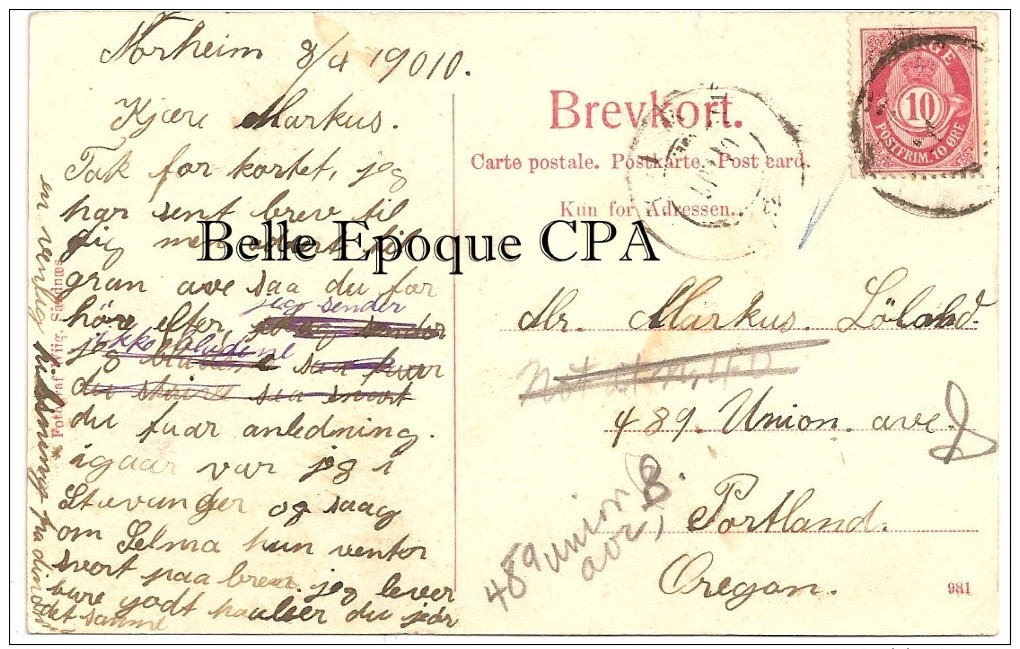 Norheim 3/4 19010.
Kjære Markus.
Tak for kortet, jeg
har sent brev til
dig men
gran ave saa du får
høre efter
jeg sender
ikke bladene
du skriver saa snart
du fuar anledning.
igaar var jeg i
Stavanger og saag
om Selma hun venter
svort paa brev. jeg lever
bare godt haaber du jör
det samme
en venlig
Fotograf Wiig, Sandnæs
Brevkort.
Carte postale. Postkarte. Post card.
Kun for Adressen.
NORGE
10
POSTFRIM. 10 ØRE
Mr. Markus. Löland.
489. Union ave.
Portland.
Oregon.
489 union
ave, 8.
981
Belle Epoque CPA